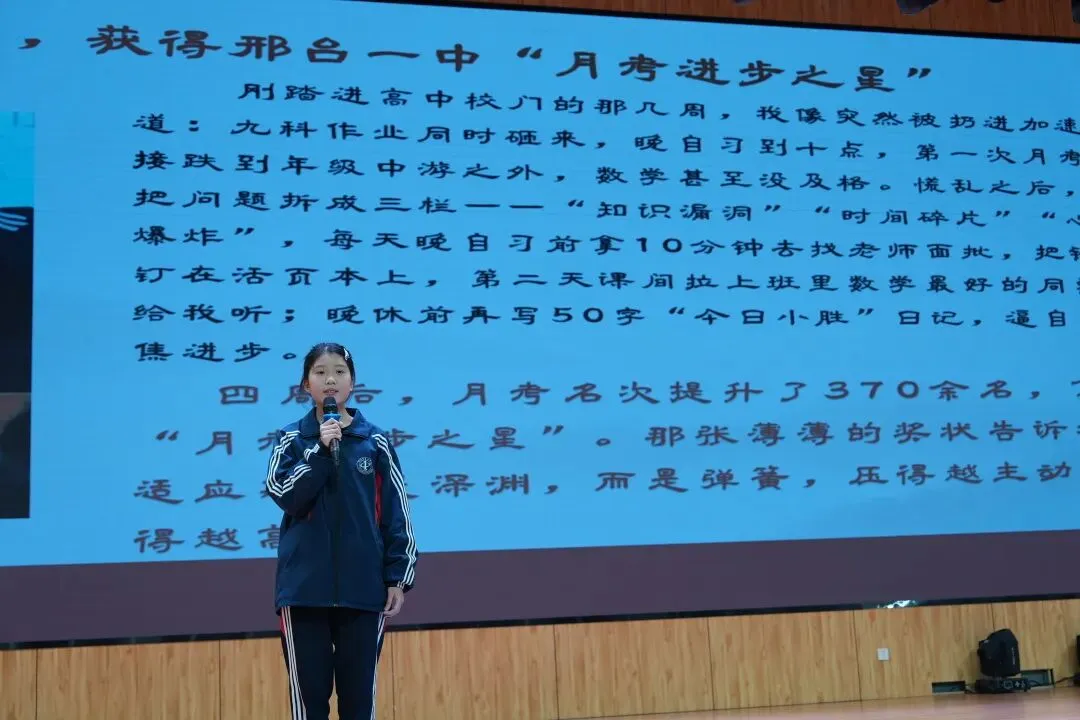 ，获得邢台一中“月考进步之星”
刚踏进高中校门的那几周，我像突然被扔进加速
道：九科作业同时砸来，晚自习到十点，第一次月考
接跌到年级中游之外，数学甚至没及格。慌乱之后，
把问题拆成三栏——“知识漏洞”“时间碎片”“心
爆炸”，每天晚自习前拿10分钟去找老师面批，把错
钉在活页本上，第二天课间拉上班里数学最好的同
给我听；晚休前再写50字“今日小胜”日记，逼自
焦进步。
四周后，月考名次提升了370余名，
“月考 步之星”。那张薄薄的奖状告诉
适应 深渊，而是弹簧，压得越主动
得越高